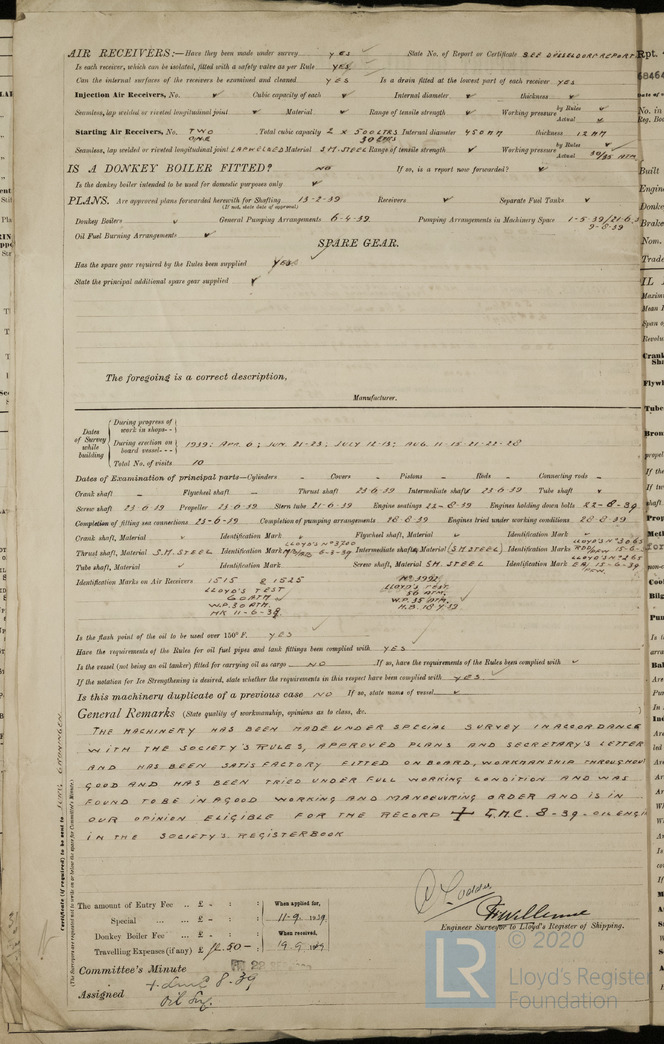 AIR RECEIVERS:—Have they been made under survey YES State No. of Report or Certificate SEE DUSSELDORF REPORT
Is each receiver, which can be isolated, fitted with a safety valve as per Rule YES
Can the internal surfaces of the receivers be examined and cleaned YES Is a drain fitted at the lowest part of each receiver YES
Injection Air Receivers, No. ✓ Cubic capacity of each ✓ Internal diameter ✓ thickness ✓
Seamless, lap welded or riveted longitudinal joint ✓ Material ✓ Range of tensile strength ✓ Working pressure by Rules ✓ Actual ✓
Starting Air Receivers, No. TWO ONE Total cubic capacity 2 x 500 LTRS 30 LTRS Internal diameter 450 MM thickness 12 MM
Seamless, lap welded or riveted longitudinal joint LAPWELDED Material S.M. STEEL Range of tensile strength ✓ Working pressure by Rules ✓ Actual 30/35 ATM
IS A DONKEY BOILER FITTED? NO If so, is a report now forwarded? ✓
Is the donkey boiler intended to be used for domestic purposes only ✓
PLANS. Are approved plans forwarded herewith for Shafting 13-2-39 Receivers ✓ Separate Fuel Tanks ✓
(If not, state date of approval)
Donkey Boilers ✓ General Pumping Arrangements 6-4-39 Pumping Arrangements in Machinery Space 1-5-39/21-6
9-8-39
Oil Fuel Burning Arrangements ✓
SPARE GEAR.
Has the spare gear required by the Rules been supplied YES
State the principal additional spare gear supplied ✓
The foregoing is a correct description,
Manufacturer.
Dates of Survey while building
During progress of work in shops - -
During erection on board vessel - - 1939: APR. 6; JUN. 21-23; JULY 12-13; AUG. 11-15-21-22-28
Total No. of visits 10
Dates of Examination of principal parts—Cylinders - Covers - Pistons - Rods - Connecting rods -
Crank shaft - Flywheel shaft - Thrust shaft 23-6-39 Intermediate shafts 23-6-39 Tube shaft ✓
Screw shaft 23-6-39 Propeller 23-6-39 Stern tube 21-6-39 Engine seatings 22-8-39 Engines holding down bolts 22-8-39
Completion of fitting sea connections 23-6-39 Completion of pumping arrangements 28-8-39 Engines tried under working conditions 28-8-39
Crank shaft, Material ✓ Identification Mark ✓ Flywheel shaft, Material ✓ Identification Mark ✓
Thrust shaft, Material S.M. STEEL Identification Mark LLOYD'S Nº 3700 6-6-39 Intermediate shafts, Material S.M. STEEL Identification Marks LLOYD'S Nº 3065 15-6-
Tube shaft, Material ✓ Identification Mark Screw shaft, Material S.M. STEEL Identification Mark LLOYD'S Nº 265 15-6-39
Identification Marks on Air Receivers 1515 & 1525 Nº 3992
LLOYD'S TEST LLOYD'S TEST
60 ATM 56 ATM.
W.P. 30 ATM. W.P. 35 ATM.
HK 11-6-39 H.B. 18 7 39
Is the flash point of the oil to be used over 150° F. YES
Have the requirements of the Rules for oil fuel pipes and tank fittings been complied with YES
Is the vessel (not being an oil tanker) fitted for carrying oil as cargo NO If so, have the requirements of the Rules been complied with ✓
If the notation for Ice Strengthening is desired, state whether the requirements in this respect have been complied with YES
Is this machinery duplicate of a previous case NO If so, state name of vessel ✓
General Remarks (State quality of workmanship, opinions as to class, &c.
THE MACHINERY HAS BEEN MADE UNDER SPECIAL SURVEY IN ACCORDANCE
WITH THE SOCIETY'S RULES, APPROVED PLANS AND SECRETARY'S LETTER
AND HAS BEEN SATISFACTORY FITTED ON BOARD, WORKMANSHIP THROUGHOU
GOOD AND HAS BEEN TRIED UNDER FULL WORKING CONDITION AND WAS
FOUND TO BE IN A GOOD WORKING AND MANOEUVRING ORDER AND IS IN
OUR OPINION ELIGIBLE FOR THE RECORD + L.M.C. 8-39-OIL ENGI
IN THE SOCIETY'S REGISTERBOOK
Certificate (if required) to be sent to SURV. GRONINGEN.
(The Surveyors are requested not to write on or below the space for Committee's Minute.)
The amount of Entry Fee .. £ - : :
Special ... £ - : :
Donkey Boiler Fee ... £ - : :
Travelling Expenses (if any) £ 50 - :
When applied for,
11-9- 1939
When received,
19.9.
Engineer Surveyor to Lloyd's Register of Shipping.
Committee's Minute
Assigned + LMC 8.39
Oil Eng.
LR
© 2020
Lloyd's Register
Foundation
Rpt.